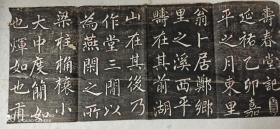 壽春堂記
延祐乙卯嘉
平之月東里
翁卜居鄭鄉
里之溪西平
疇在其前湖
山在其後乃
作堂三間以
為燕閑之所
梁柱桷榱小
大中度簡如
也煇如也甫